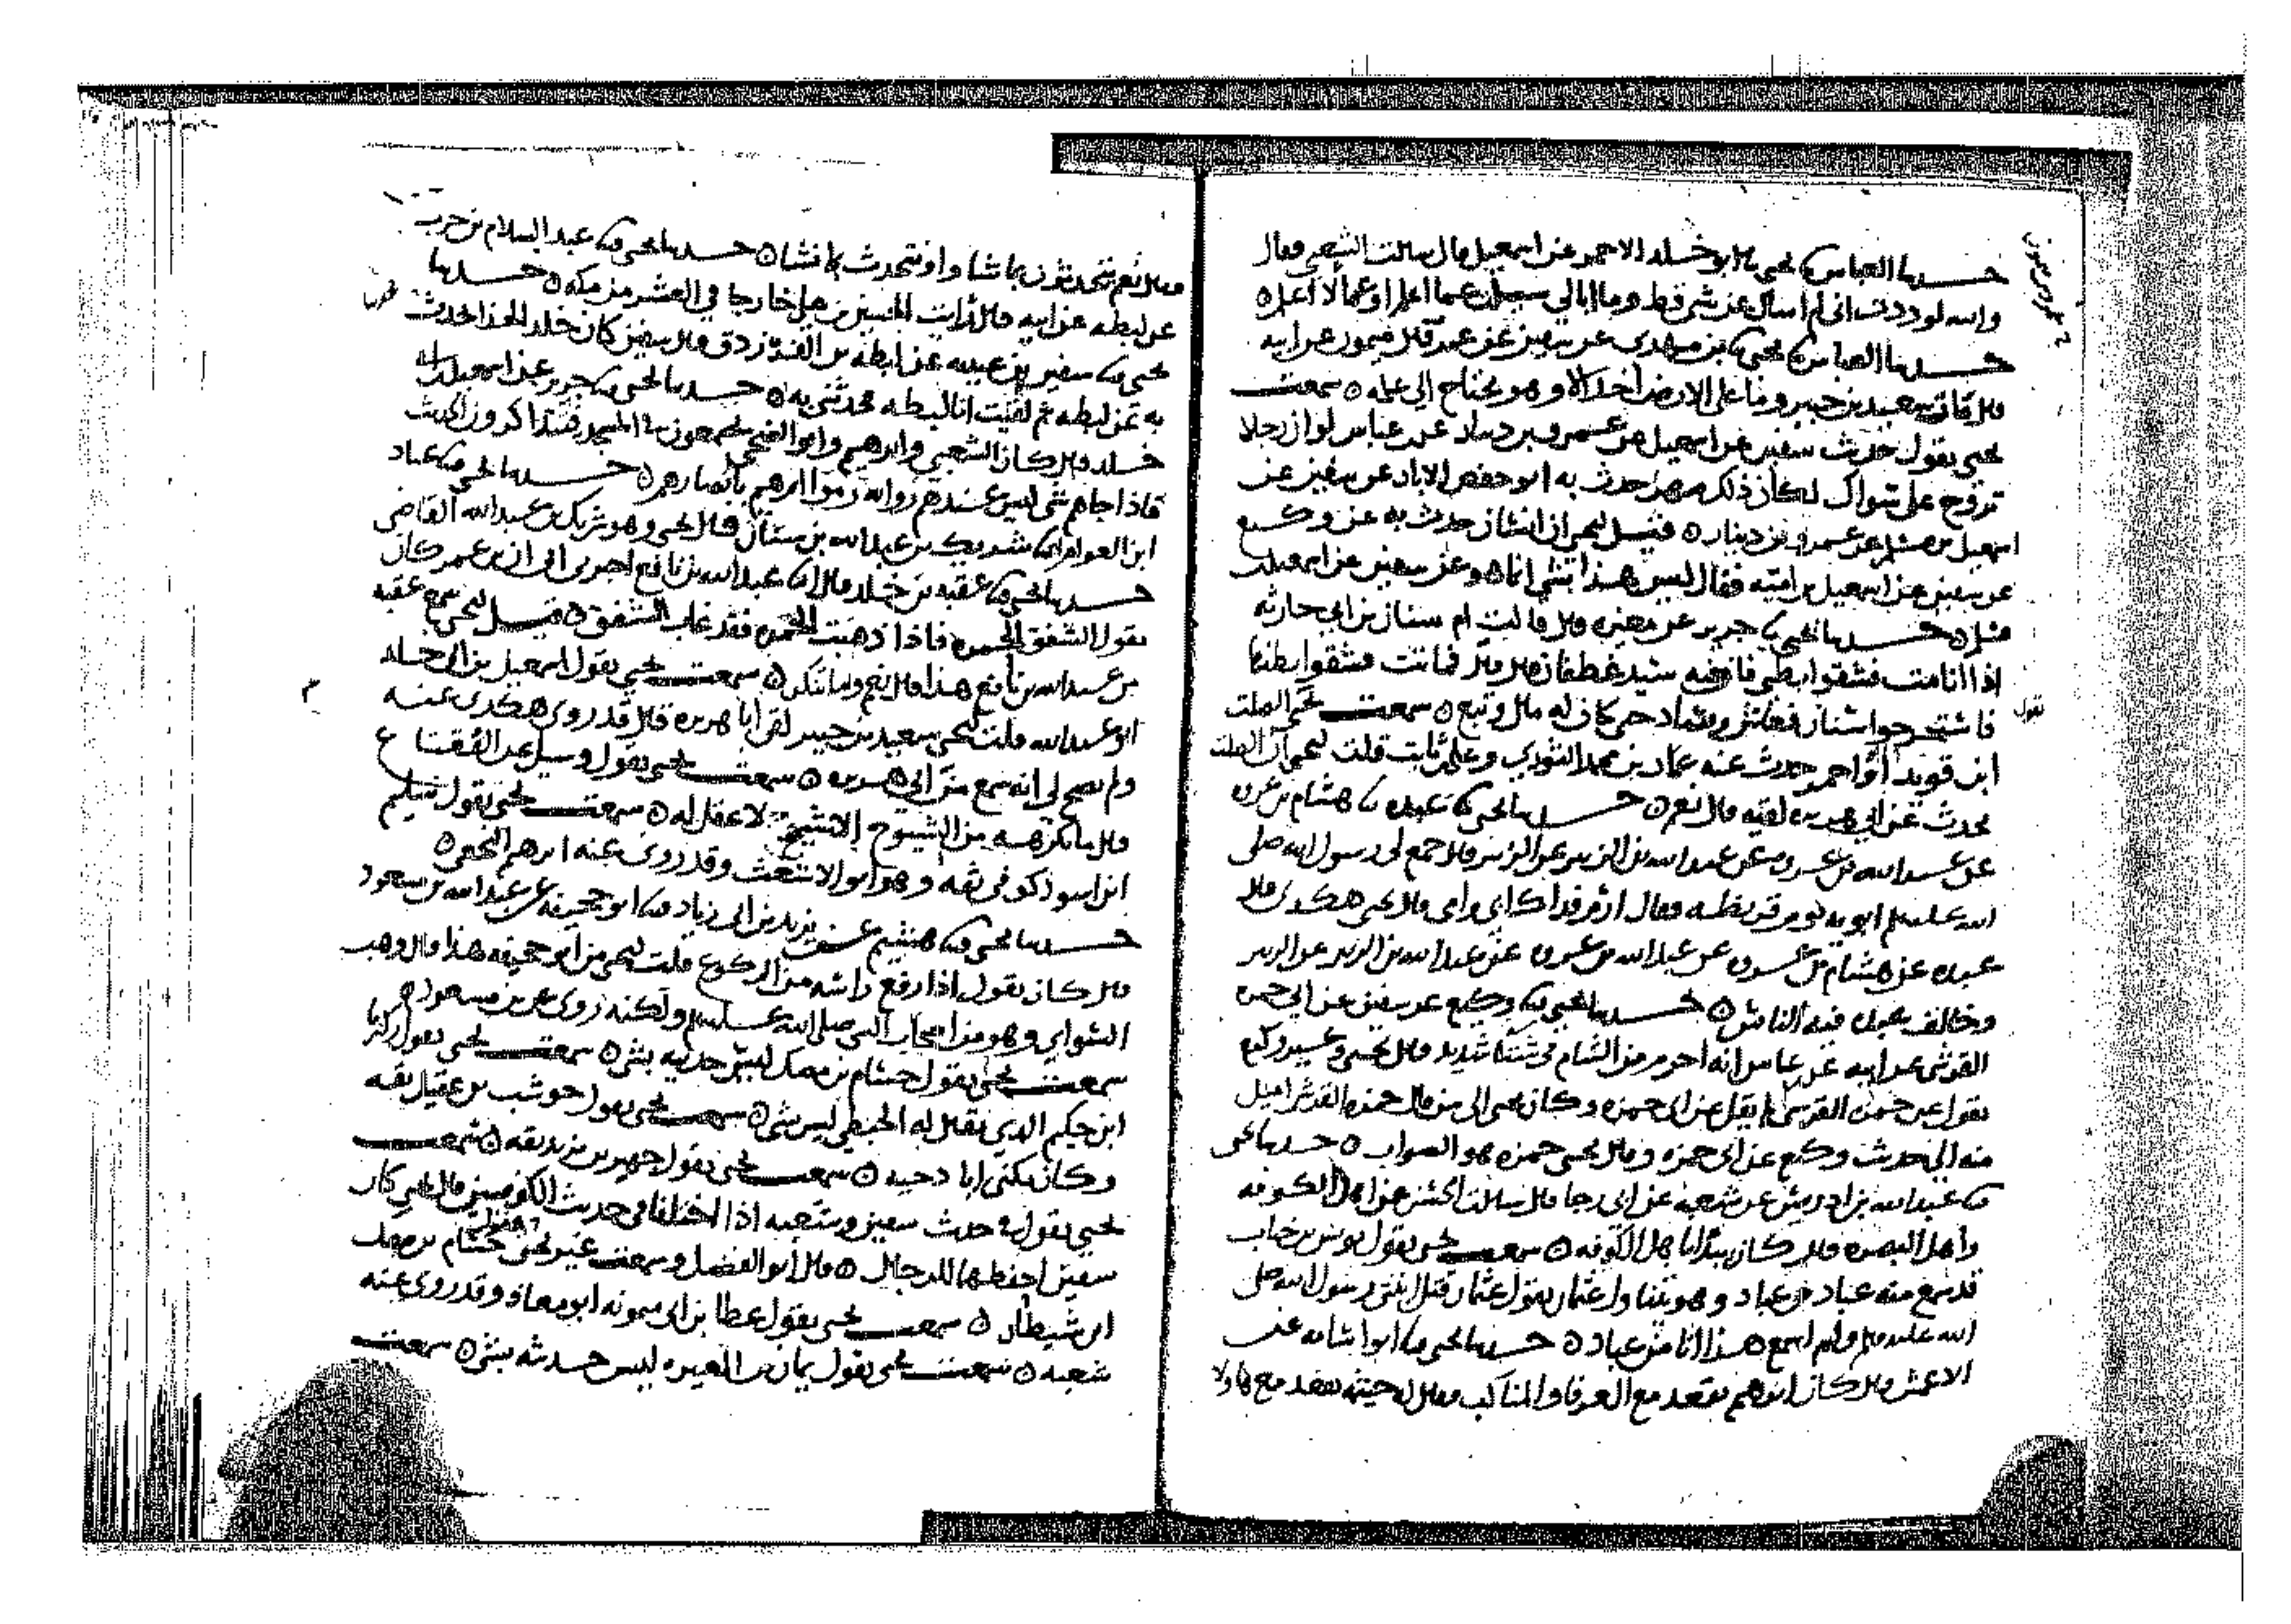 حدثنا العباس نا يحيى نا ابو خلد الاحمر عن اسمعيل قال سالت الشعبي فقال
والله لوددت اني لم اسأل عن شي قط وما ابالي سيلت عما اعلم او عما لا اعلم
حدثنا العباس نا يحيى نا بن مهدي عن سفين عن عمر بن ميمون عن ابيه
قال مات سعيد بن جبير وما على الارض احد الا وهو يحتاج الى علمه سمعت
يحيى يقول حديث سفين عن اسمعيل عن عمرو بن دينار عن بن عباس لو ان رجلا
تزوج على سواك لكان ذلك مهرا حدث به ابو حفص الابار عن سفين عن
اسمعيل بن مسلم عن عمرو بن دينار فقيل ليحيى ان انسان حدث به عن وكيع
عن سفين عن اسمعيل بن امية فقال ليس هذا بشي انما هو عن سفين عن اسمعيل بن
مسلم حدثنا يحيى نا جرير عن مغيره قال قالت ام سنان بن ابي حارثه
اذا انا مت فشقوا بطني فان فيه سيد غطفان قال فماتت فشقوا بطنها
فاستخرجوا سنان فعاش وساد حتى كان له مال وتبع سمعت يحيى الصلت
ابن قويد ابو احمر حدث عنه عمار بن محمد الثوري وعلي بن ثابت قلت ليحيى ان الصلت
يحدث عن ابي هريره لقيه قال نعم حدثنا يحيى نا عبده نا هشام بن عروه
عن عبد الله بن عروه عن عبد الله بن الزبير عن الزبير قال جمع لي رسول الله صلى
الله عليه وسلم ابويه يوم قريظه فقال ارم فداك ابي وامي قال يحيى هكدى قال
عبده عن هشام بن عروه عن عبد الله بن عروه عن عبد الله بن الزبير عن الزبير
وخالف عبده فيه الناس حدثنا يحيى نا وكيع عن سفين عن ابي حمزه
القرشي عن ابيه عن بن عباس انه احرم من الشام في شتا شديد قال يحيى وغير وكيع
يقول عن حمزه القرشي لم يقل عن ابي حمزه وكان يحيى الى من قال حمزه القرشي اميل
منه الى حديث وكيع عن ابي حمزه وقال يحيى حمزه هو الصواب حدثنا يحيى
نا عبد الله بن ادريس عن شعبه عن ابي رجا قال سالت الحسن عن اهل الكوفه
واهل البصره قال كان يبدا باهل الكوفه سمعت يحيى يقول يونس بن خباب
قد سمع منه عباد بن عباد وهو يتناول عثمان يقول عثمان قتل بنتي رسول الله صلى
الله عليه وسلم ولم اسمع هذا انا من عباد حدثنا يحيى نا ابو اسامه عن
الاعمش قال كان ابرهيم يقعد مع العرفا والمناكب فقال له خيثمه تقعد مع هاولا
قال نعم نتحدثون بما شاوا ونتحدث بما نشا حدثنا يحيى نا عبد السلام بن حرب
عن لبطه عن ابيه قال رايت الحسين بن علي خارجا في العشر من مكه حدثنا
يحيى نا سفين بن عيينه عن لبطه بن الفرزدق قال سفين كان خلد الحذا حدث
به عن لبطه ثم لقيت انا لبطه فحدثني به حدثنا يحيى نا جرير عن اسمعيل بن ابي
خلد قال كان الشعبي وابرهيم وابو الضحى يجتمعون في المسجد فيتذاكرون الحديث
فاذا جاهم شي ليس عندهم روايه رموا ابرهيم بابصارهم حدثنا يحيى نا عباد
ابن العوام انا شريك بن عبد الله بن سنان قال يحيى وهو شريك بن عبد الله القاضي
حدثنا يحيى نا عقبه بن خلد قال انا عبد الله بن نافع اخبرني ابي ان بن عمر كان
يقول الشفق الحمره فاذا ذهبت الحمره فقد غاب الشفق فقيل ليحيى سمع عقبه
من عبد الله بن نافع هذا قال نعم وما تنكر سمعت يحيى يقول اسمعيل بن ابي خلد
ابو عبد الله قلت ليحيى سعيد بن جبير لقي ابا هريره قال قد روى هكدى عنه
ولم يصح لي انه سمع من ابي هريره سمعت يحيى يقول وسيل عن الفقاع
قال ما يكرهه من الشيوخ الا شيخ لا عقل له سمعت يحيى يقول سليم
ابن اسود كوفي ثقه وهو ابو الاشعث وقد روى عنه ابرهيم النخعي
حدثنا يحيى نا هشيم عن يزيد بن ابي زياد نا ابو جحيفه عن عبد الله بن مسعود
قال كان يقول اذا رفع راسه من الركوع قلت ليحيى من ابو جحيفه هذا قال وهب
السواي وهو من اصحاب النبي صلى الله عليه وسلم ولكنه روى عن بن مسعود
سمعت يحيى يقول حسام بن مصك ليس حديثه بشي سمعت يحيى يقول زكريا
ابن حكيم الدي يقال له الحبطي ليس بشي سمعت يحيى يقول حوشب بن عقيل ثقه
وكان يكنى ابا دحيه سمعت يحيى يقول جهير بن يزيد ثقه سمعت
يحيى يقول في حديث سفين وشعبه اذا اختلفا في حديث الكوفيين قال يحيى كان
سفين احفظها للرجال قال ابو الفضل وسمعت غير يحيى يقول حسام بن مصك
ابن شيطان سمعت يحيى يقول عطا بن ابي ميمونه ابو معاذ وقد روى عنه
شعبه سمعت يحيى يقول يمان بن المغيره ليس حديثه بشي سمعت